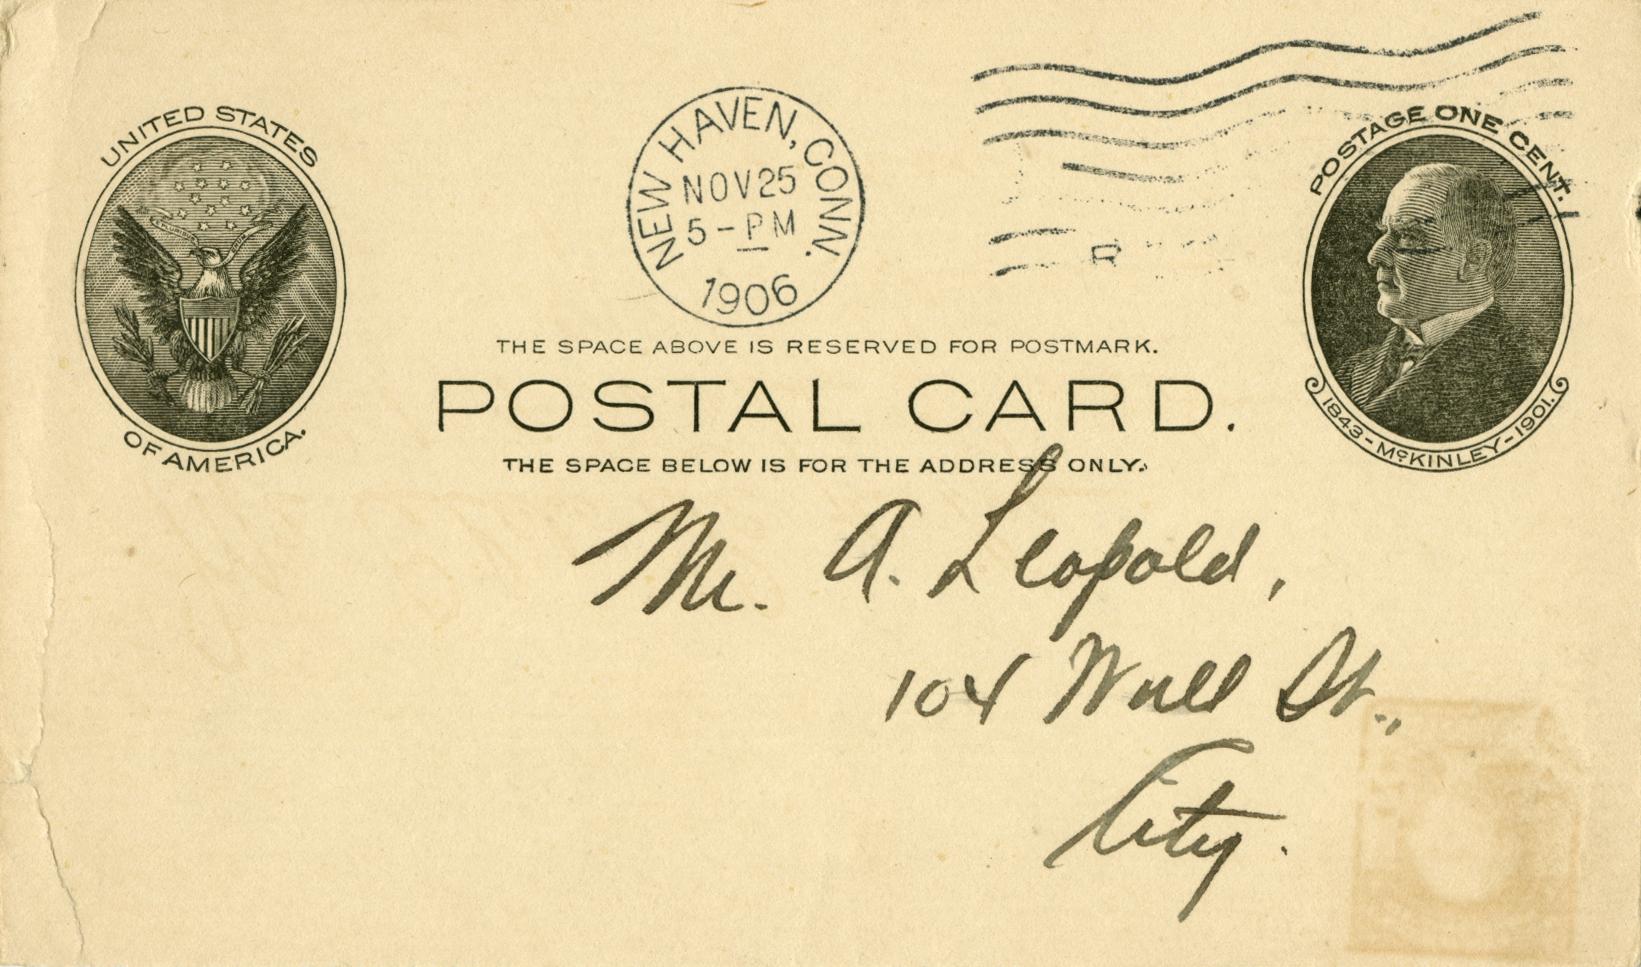 UNITED STATES
OF AMERICA.
NEW HAVEN, CONN.
NOV 25
5-PM
1906
R
POSTAGE ONE CENT.
1843-McKINLEY-1901.
THE SPACE ABOVE IS RESERVED FOR POSTMARK.
POSTAL CARD.
THE SPACE BELOW IS FOR THE ADDRESS ONLY.
Mr. A. Leopold,
104 Wall St.,
City.